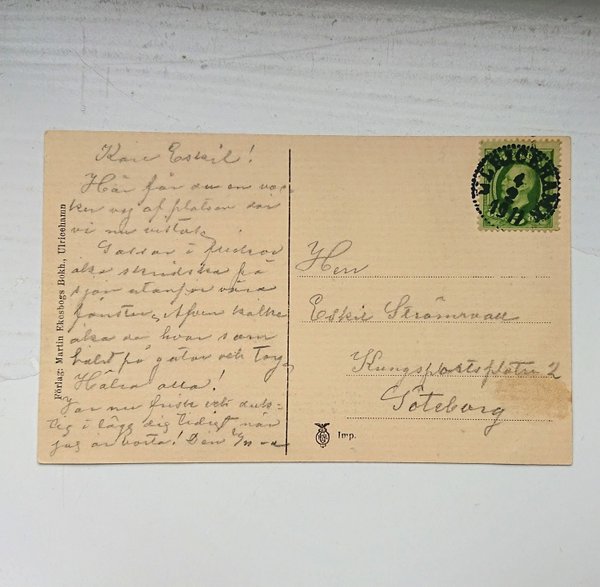 Käre Eskil!
Här får du en vac-
ker vy af platsen där
vi nu vistas.
Gossar i fredrar
åka skridsko på
sjön utanför våra
fönster. Äfven kälke
åka de hvar som
helst på gator och torg.
Hälsa alla!
Var nu frisk och duk-
tig i lägg dig tidigt när
jag är borta! Den
Förlag: Martin Ekesbogs Bokh., Ulricehamn
ULRICEHAMN
4
2
1911
Herr
Eskil Strömvall
Kungsportsplatsen 2
Göteborg
Imp.